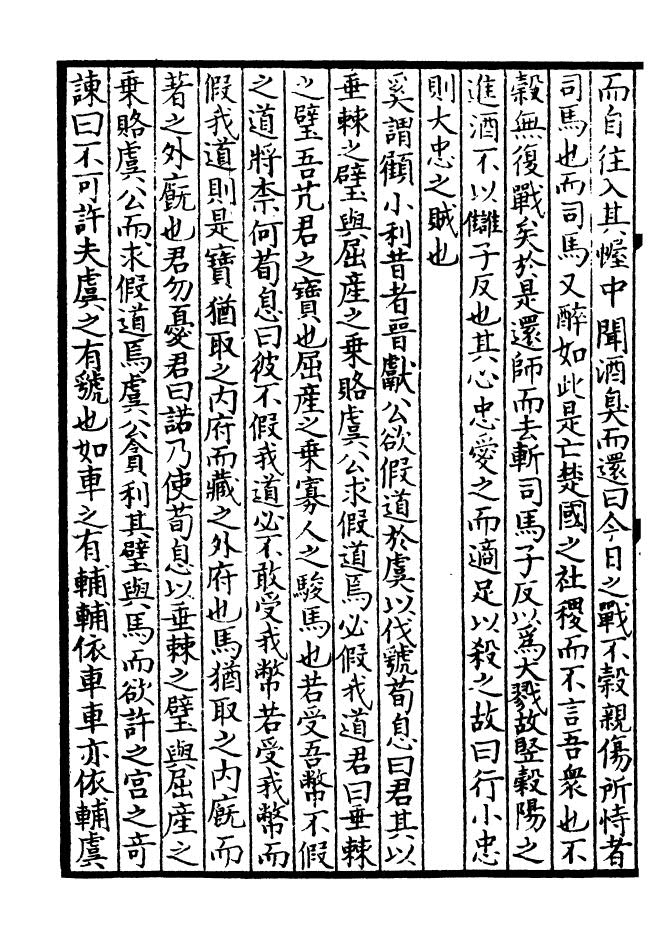 而自往入其幄中聞酒臭而還曰今日之戰不穀親傷所恃者
司馬也而司馬又醉如此是亡楚國之社稷而不言吾衆也不
穀無復戰矣於是還師而去斬司馬子反以爲大戮故竪穀陽之
進酒不以讎子反也其心忠愛之而適足以殺之故曰行小忠
則大忠之賊也
奚謂顧小利昔者晉獻公欲假道於虞以伐虢荀息曰君其以
垂棘之璧與屈産之乗賂虞公求假道焉必假我道君曰垂棘
之璧吾先君之寶也屈産之乗寡人之駿馬也若受吾幣不假
之道將柰何荀息曰彼不假我道必不敢受我幣若受我幣而
假我道則是寶猶取之内府而藏之外府也馬猶取之内廐而
著之外廐也君勿憂君曰諾乃使荀息以垂棘之璧與屈産之
乗賂虞公而求假道焉虞公貪利其璧與馬而欲許之宮之竒
諫曰不可許夫虞之有虢也如車之有輔輔依車車亦依輔虞